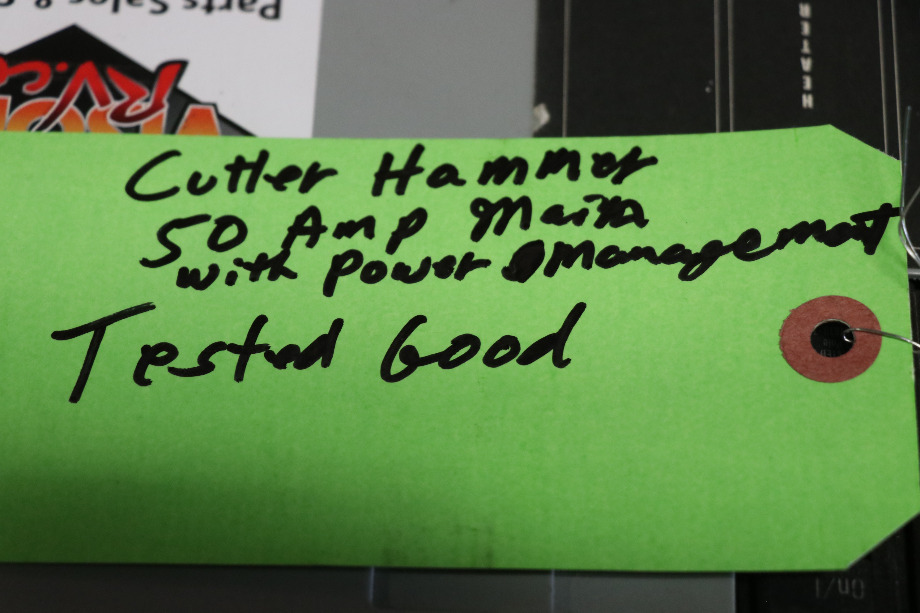 Parts Sales &
RV.co
HEATER
Cutler Hammer
50 Amp Main
with Power Management
Tested Good
On/1